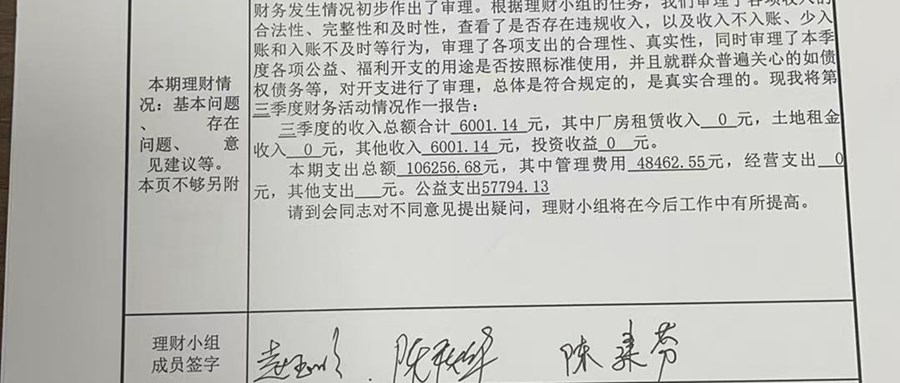 财务发生情况初步作出了审理。根据理财小组的任务，我们审理了各项收入的
合法性、完整性和及时性，查看了是否存在违规收入，以及收入不入账、少入
账和入账不及时等行为，审理了各项支出的合理性、真实性，同时审理了本季
度各项公益、福利开支的用途是否按照标准使用，并且就群众普遍关心的如债
权债务等，对开支进行了审理，总体是符合规定的，是真实合理的。现我将第
三季度财务活动情况作一报告：
三季度的收入总额合计 6001.14 元，其中厂房租赁收入 0 元，土地租金
收入 0 元，其他收入 6001.14 元，投资收益 0 元。
本期支出总额 106256.68元，其中管理费用 48462.55元，经营支出 0
元，其他支出 元。公益支出57794.13
请到会同志对不同意见提出疑问，理财小组将在今后工作中有所提高。
本期理财情
况：基本问题
、 存在
问题、 意
见建议等。
本页不够另附
理财小组
成员签字
陈 芬